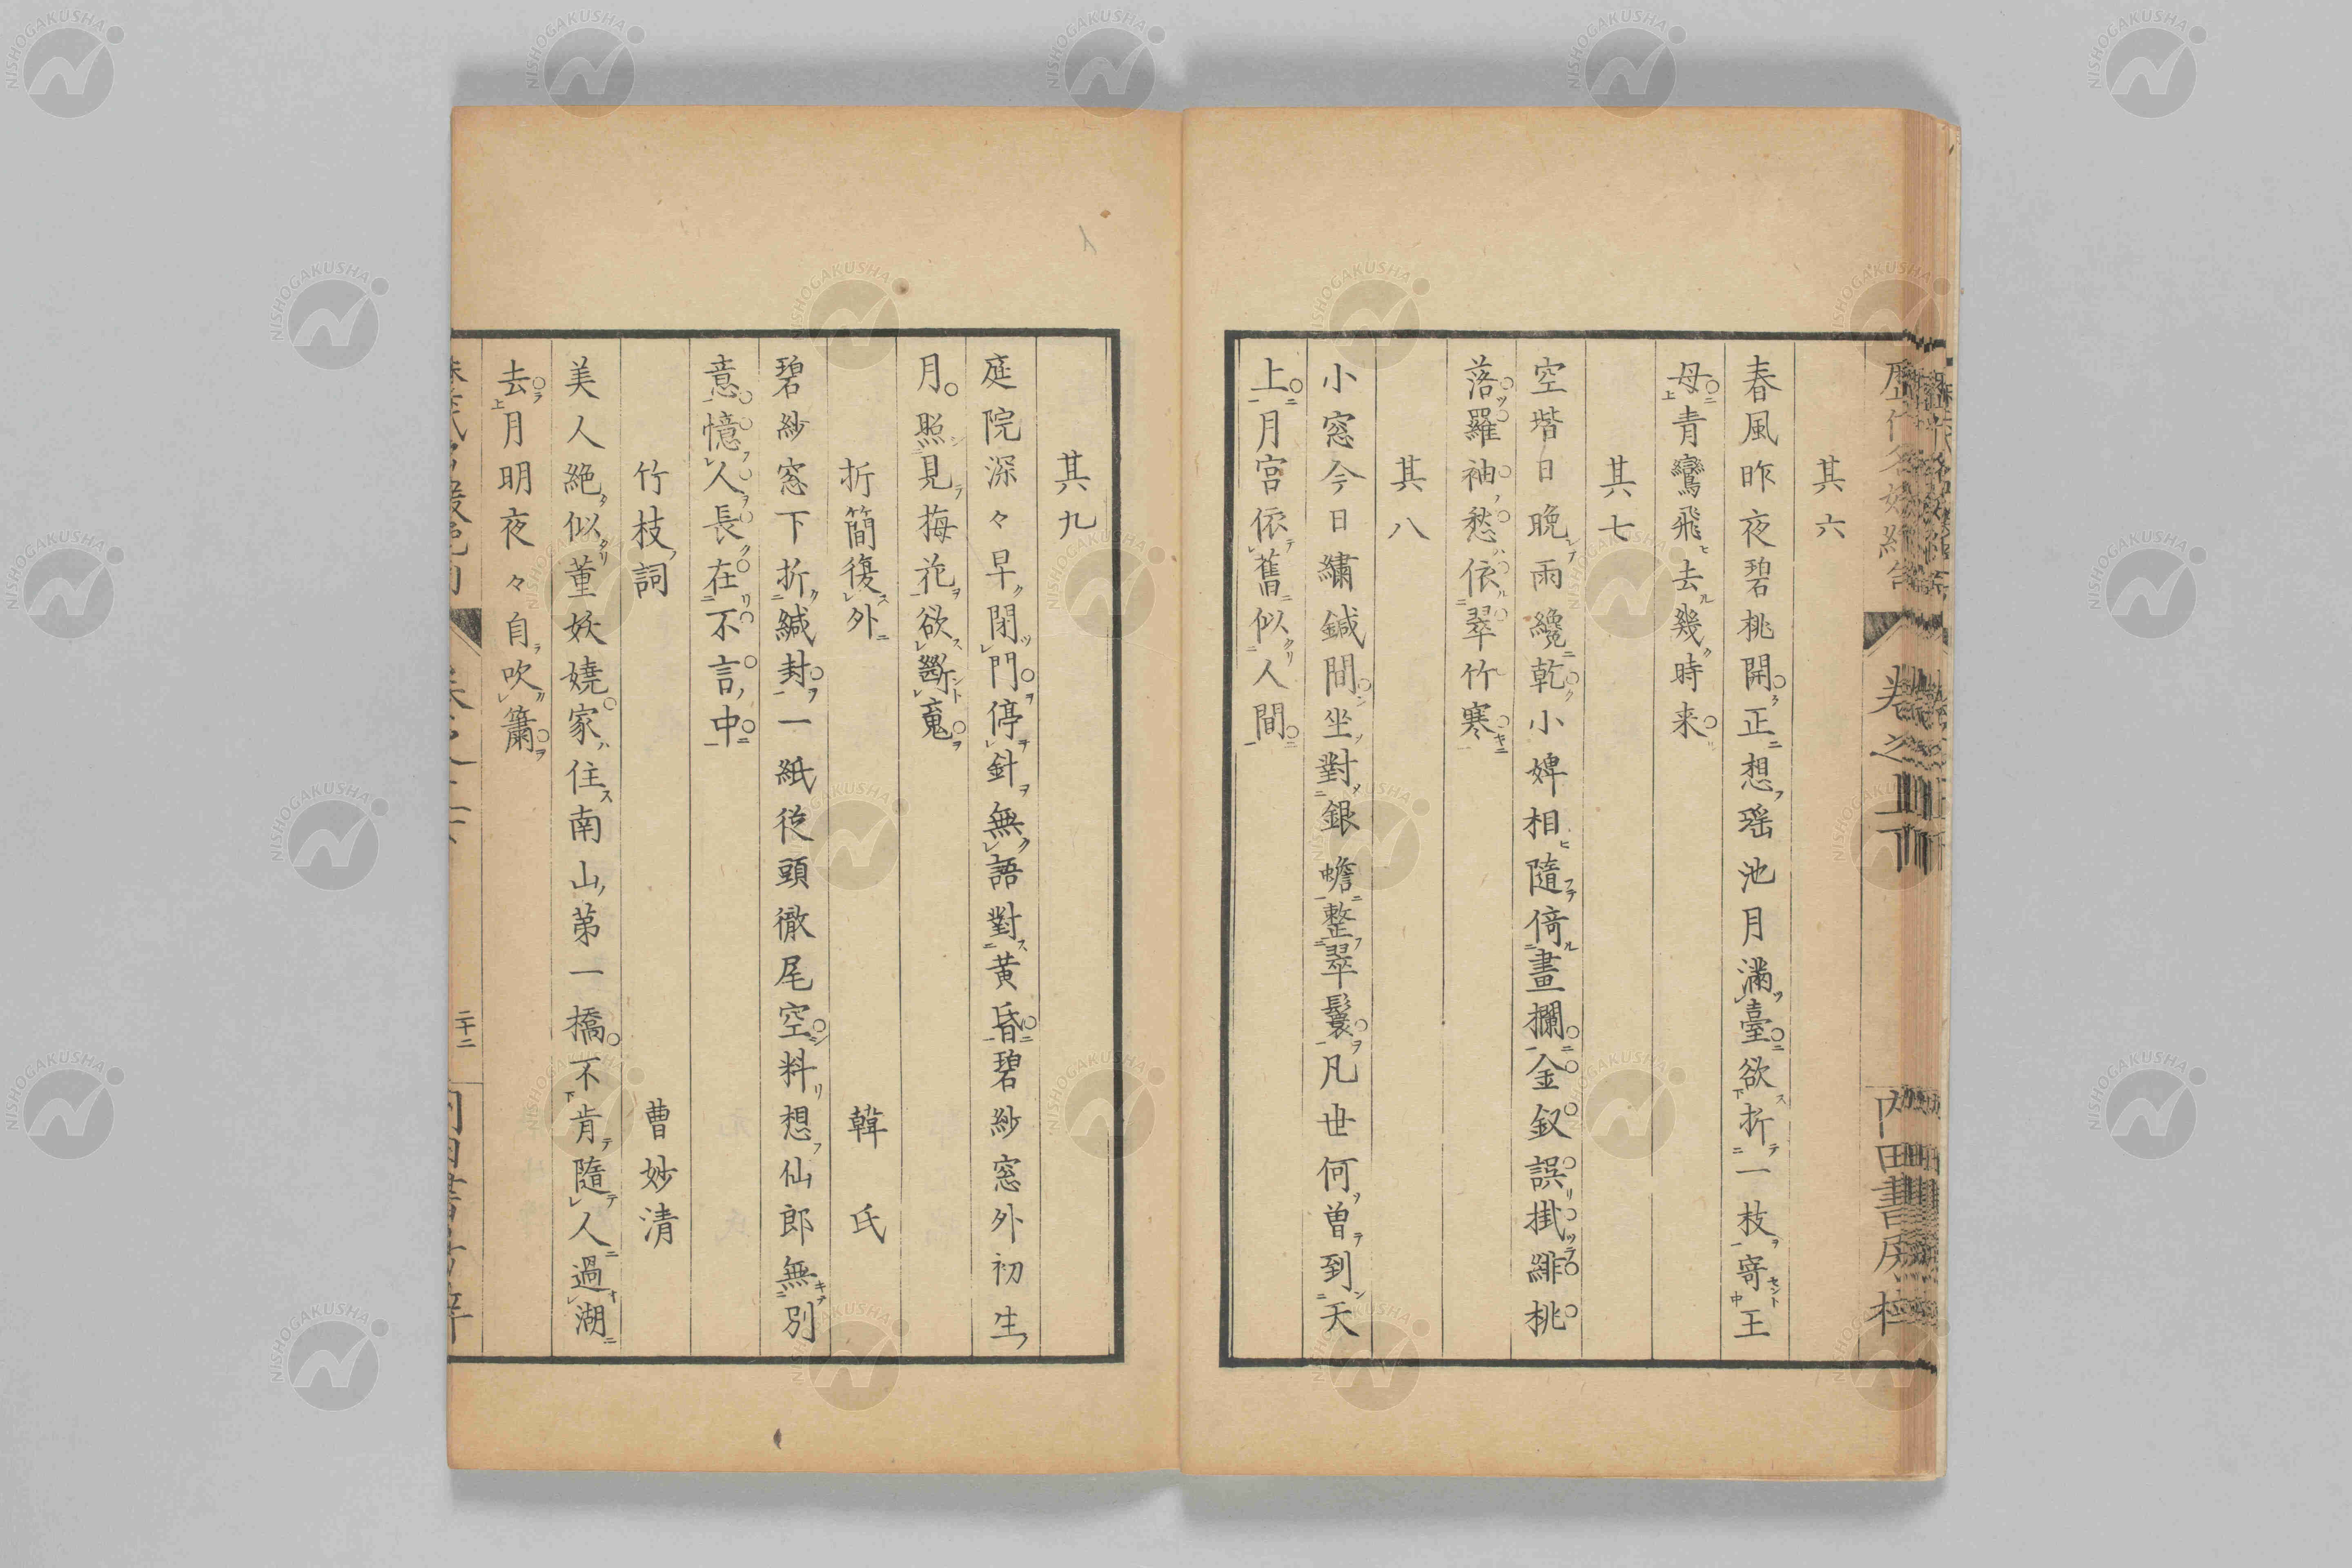 其六
春風昨夜碧桃開正想瑶池月滿臺欲折一枝寄王
母青鸞飛去幾時来
其七
空堦日晩雨纔乾小婢相隨倚畫欄金釵誤掛緋桃
落羅袖愁依翠竹寒
其八
小窓今日繡鍼間坐對銀蟾整翠鬟凡世何曽到天
上月宮依舊似人間
其九
庭院深々早閉門停針無語對黄昏碧紗窓外初生
月照見梅花欲斷䰟
折簡復外 韓氏
碧紗窓下折緘封一紙従頭徹尾空料想仙郎無別
意憶人長在不言中
竹枝詞 曹妙清
美人絶似董妖嬈家住南山第一橋不肯隨人過湖
去月明夜々自吹簫
二十二
NISHOGAKUSHA